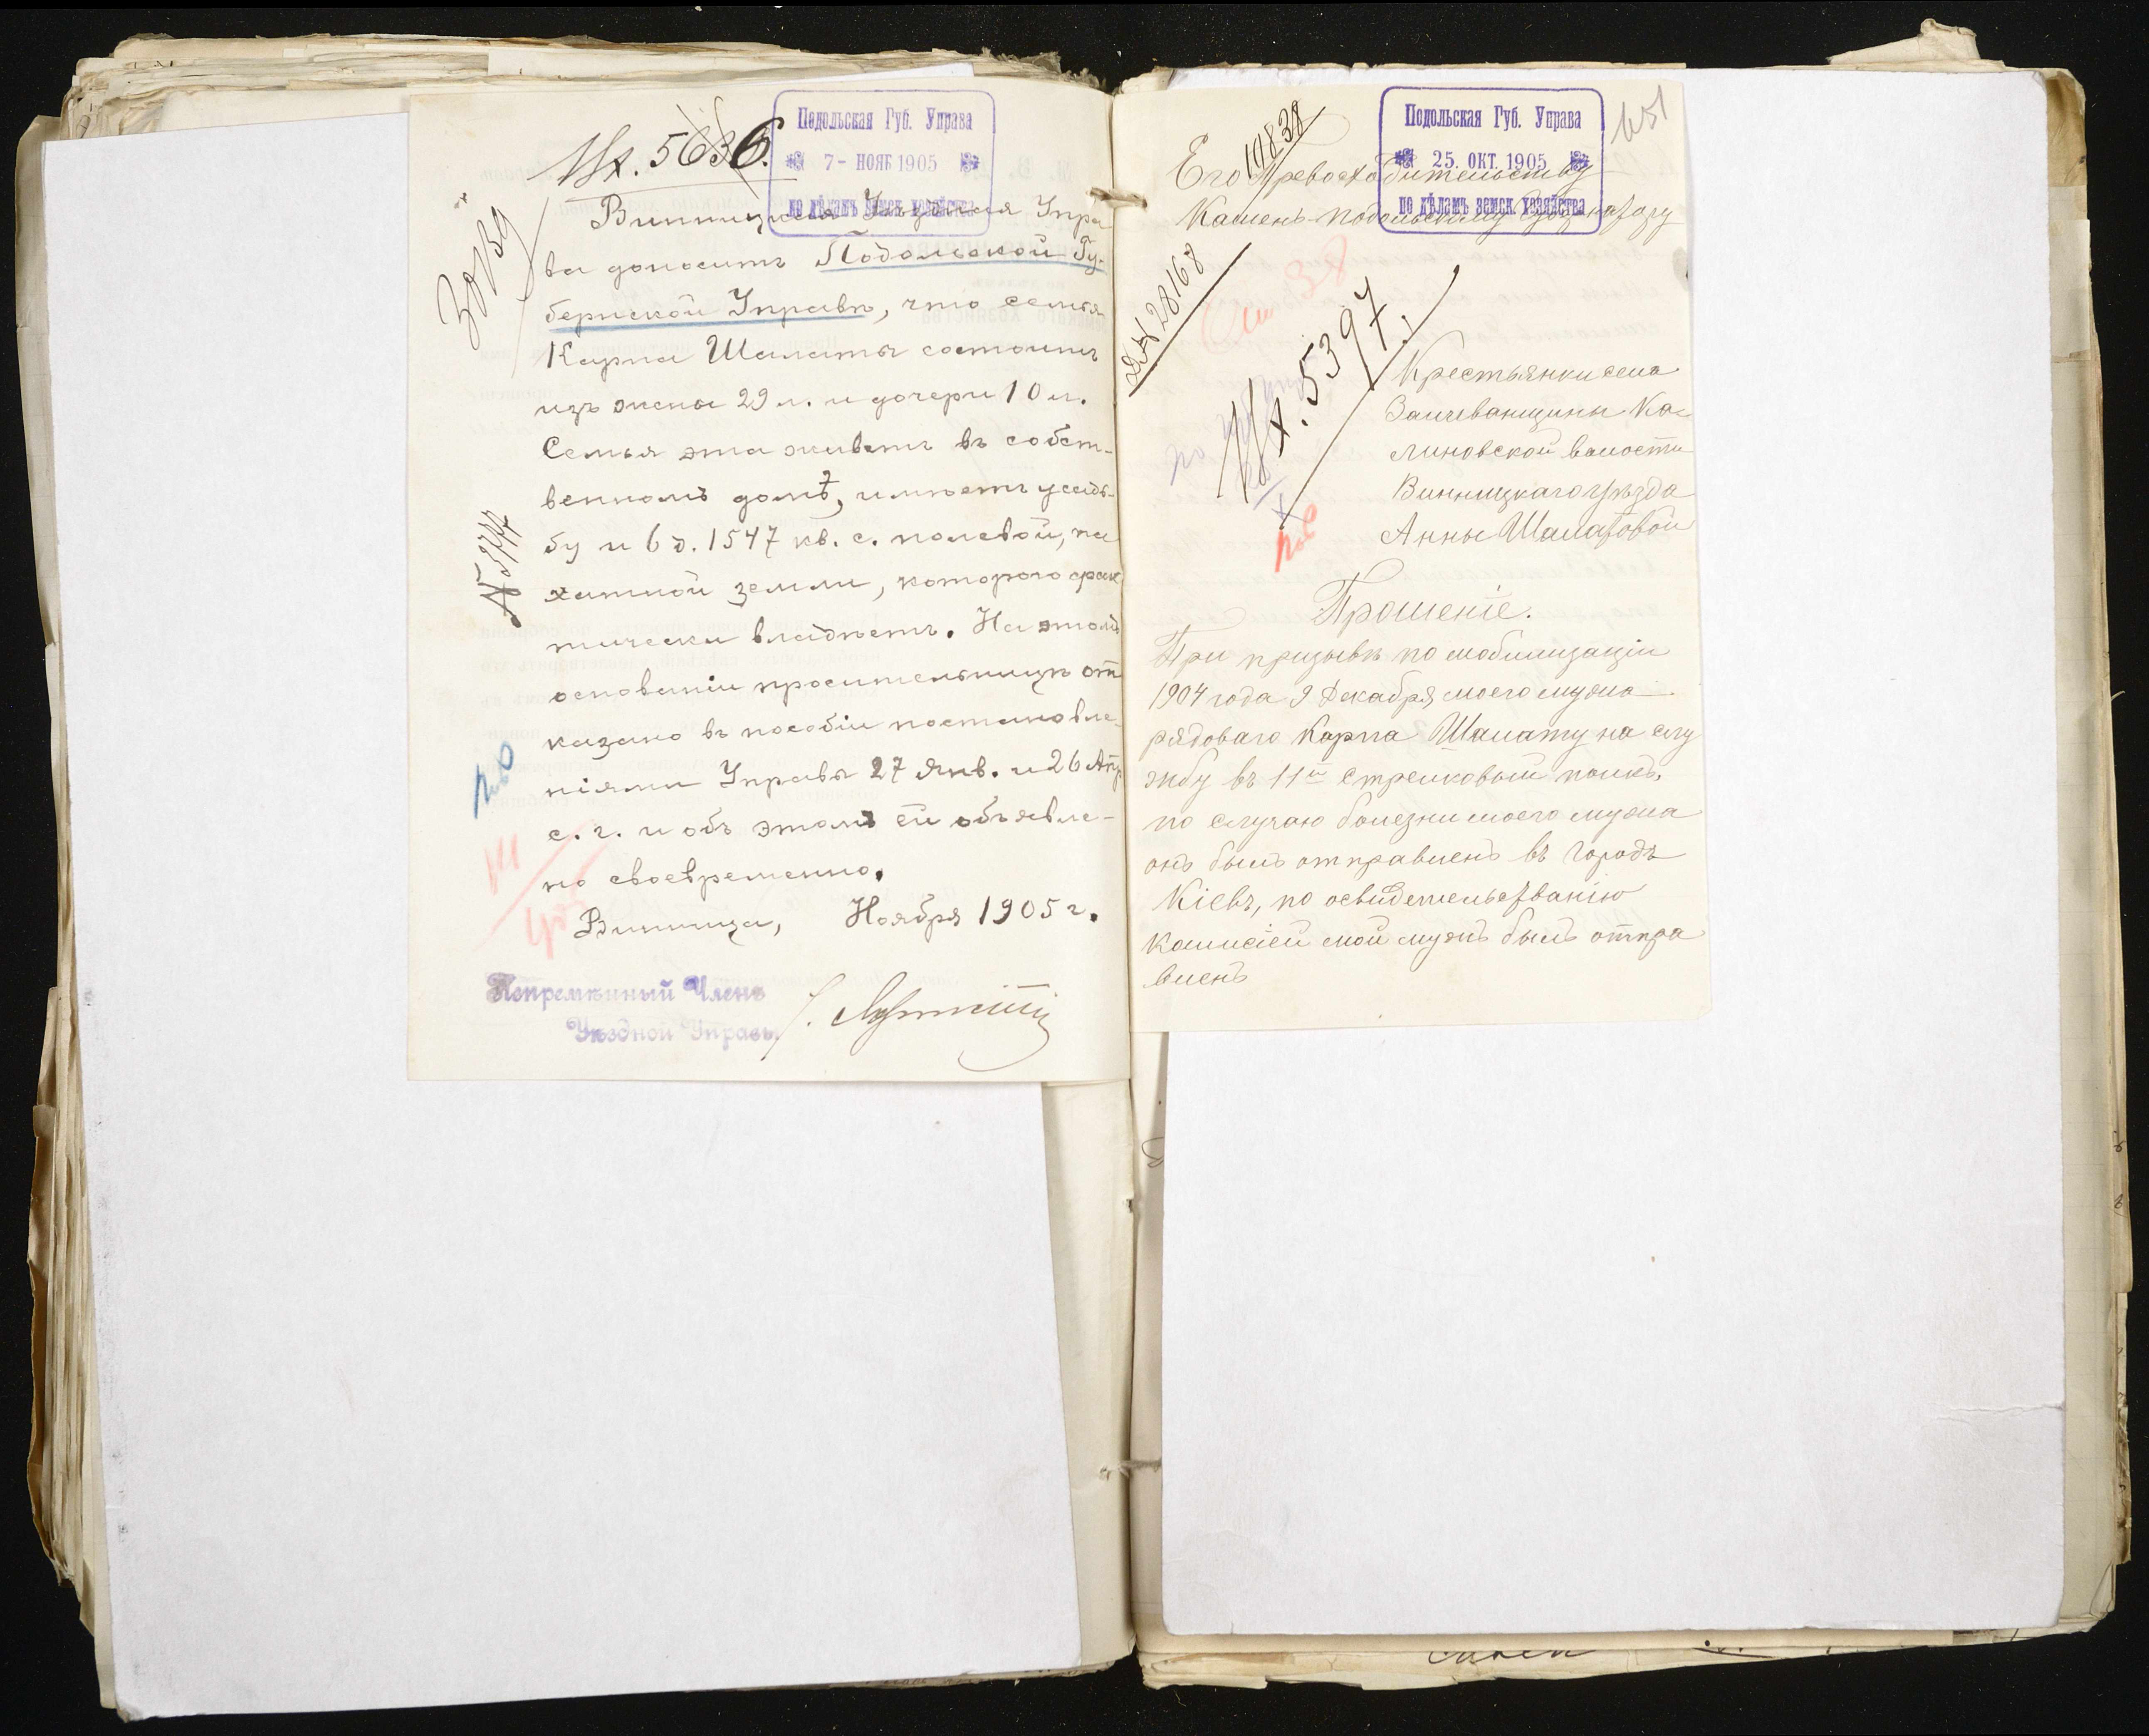 Вх. 5636.
Подольская Губ. Управа
7 - НОЯБ 1905
по дѣламъ земск. хозяйства
Винницкая Уѣздная Упра
ва доноситъ Подольской Гу-
бернской Управѣ, что семья
Карпа Шаматы состоитъ
изъ жены 29 л. и дочери 10 л.
Семья эта живетъ въ собст-
венномъ домѣ, имѣетъ усадь-
бу и 6 д. 1547 кв. с. полевой, па
хатной земли, которою фак
тически владѣетъ. На этомъ
основаніи просительницѣ от
казано въ пособіи постановле-
ніями Управы 27 Янв. и 26 Апр
с. г. и объ этомъ ей объявле-
но своевременно.
Винница, Ноября 1905 г.
Непремѣнный Членъ
Уѣздной Управы
№ 3777
19838
Подольская Губ. Управа
25. ОКТ. 1905
по дѣламъ земск. хозяйства
651
Его Превосходительству
Каменъ-подольскому Губернатору
28168
Вх. 5397.
Крестьянки села
Заливанщины Ка
линовской волости
Винницкаго уѣзда
Анны Шаматовой
Прошеніе.
При призывѣ по мобилизаціи
1904 года 9 Декабря моего мужа
рядоваго Карпа Шамату на слу
жбу въ 11й Стрелковый полкъ,
по случаю болезни моего мужа
онъ былъ отправленъ въ Городъ
Кіевъ, по освидетельствванію
Комисіей мой мужъ былъ отпра
вленъ